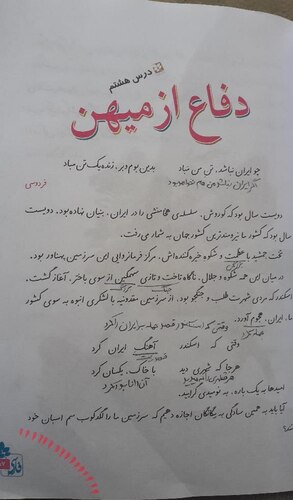 درس هشتم
دفاع از میهن
چو ایران نباشد، تن من مباد بدین بوم و بر، زنده یک تن مباد
فردوسی
دویست سال بود که کوروش، سلسله‌ی هخامنشی را در ایران، بنیان نهاده بود. دویست
سال بود که کشور ما نیرومندترین کشور جهان به شمار می‌رفت.
تخت جمشید با عظمت و شکوه خیره‌کننده‌اش، مرکز فرمانروایی این سرزمین پهناور بود.
در میان این همه شکوه و جلال، ناگاه تاخت و تازی سهمگین از سوی باختر، آغاز گشت.
اسکندر که مردی شهرت طلب و جنگجو بود، از سرزمین مقدونیه با لشکری انبوه به سوی کشور
ما، ایران، هجوم آورد.
وقتی که اسکندر آهنگ ایران کرد
هر جا که شهری دید با خاک، یکسان کرد
امیدها به یک باره، به نومیدی گرایید.
آیا باید به همین سادگی به بیگانگان اجازه دهیم که سرزمین ما را لگدکوب سم اسبان خود